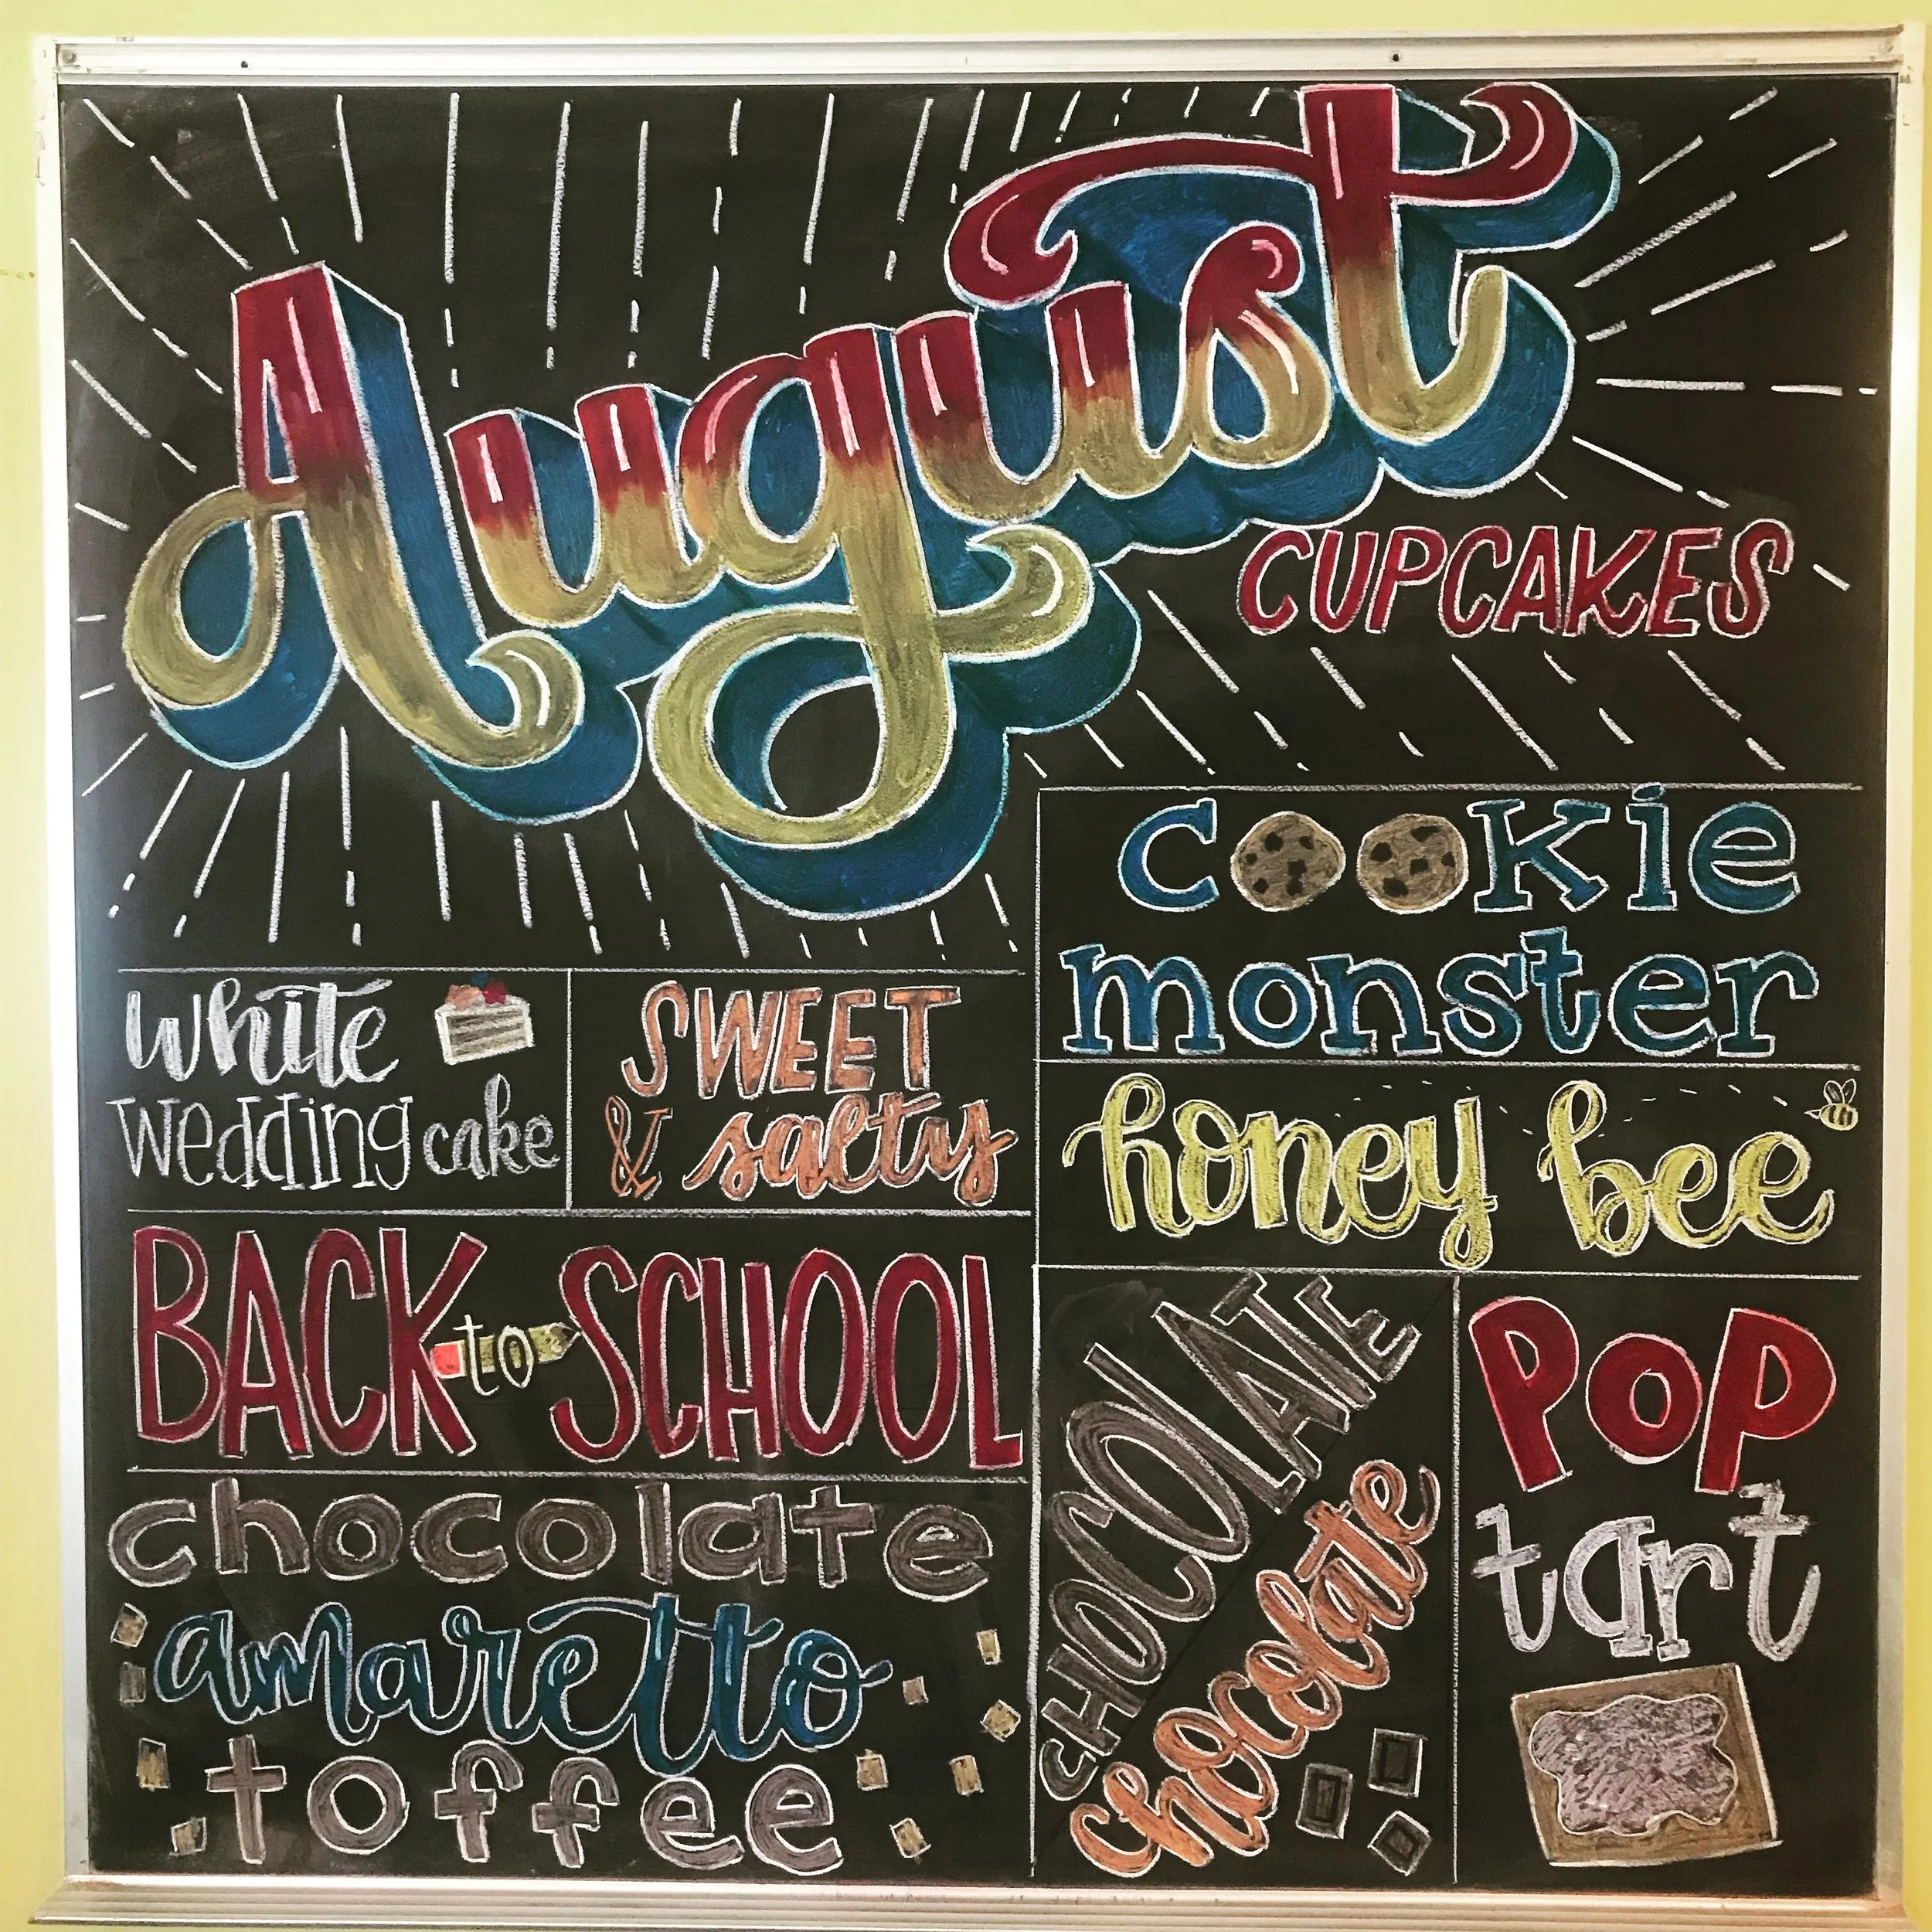 August
CUPCAKES
cookie
monster
white
wedding cake
SWEET
& salty
honey bee
BACK to SCHOOL
chocolate
amaretto
toffee
CHOCOLATE
chocolate
POP
tart